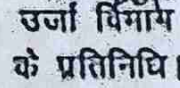 उर्जा विभाग
के प्रतिनिधि।